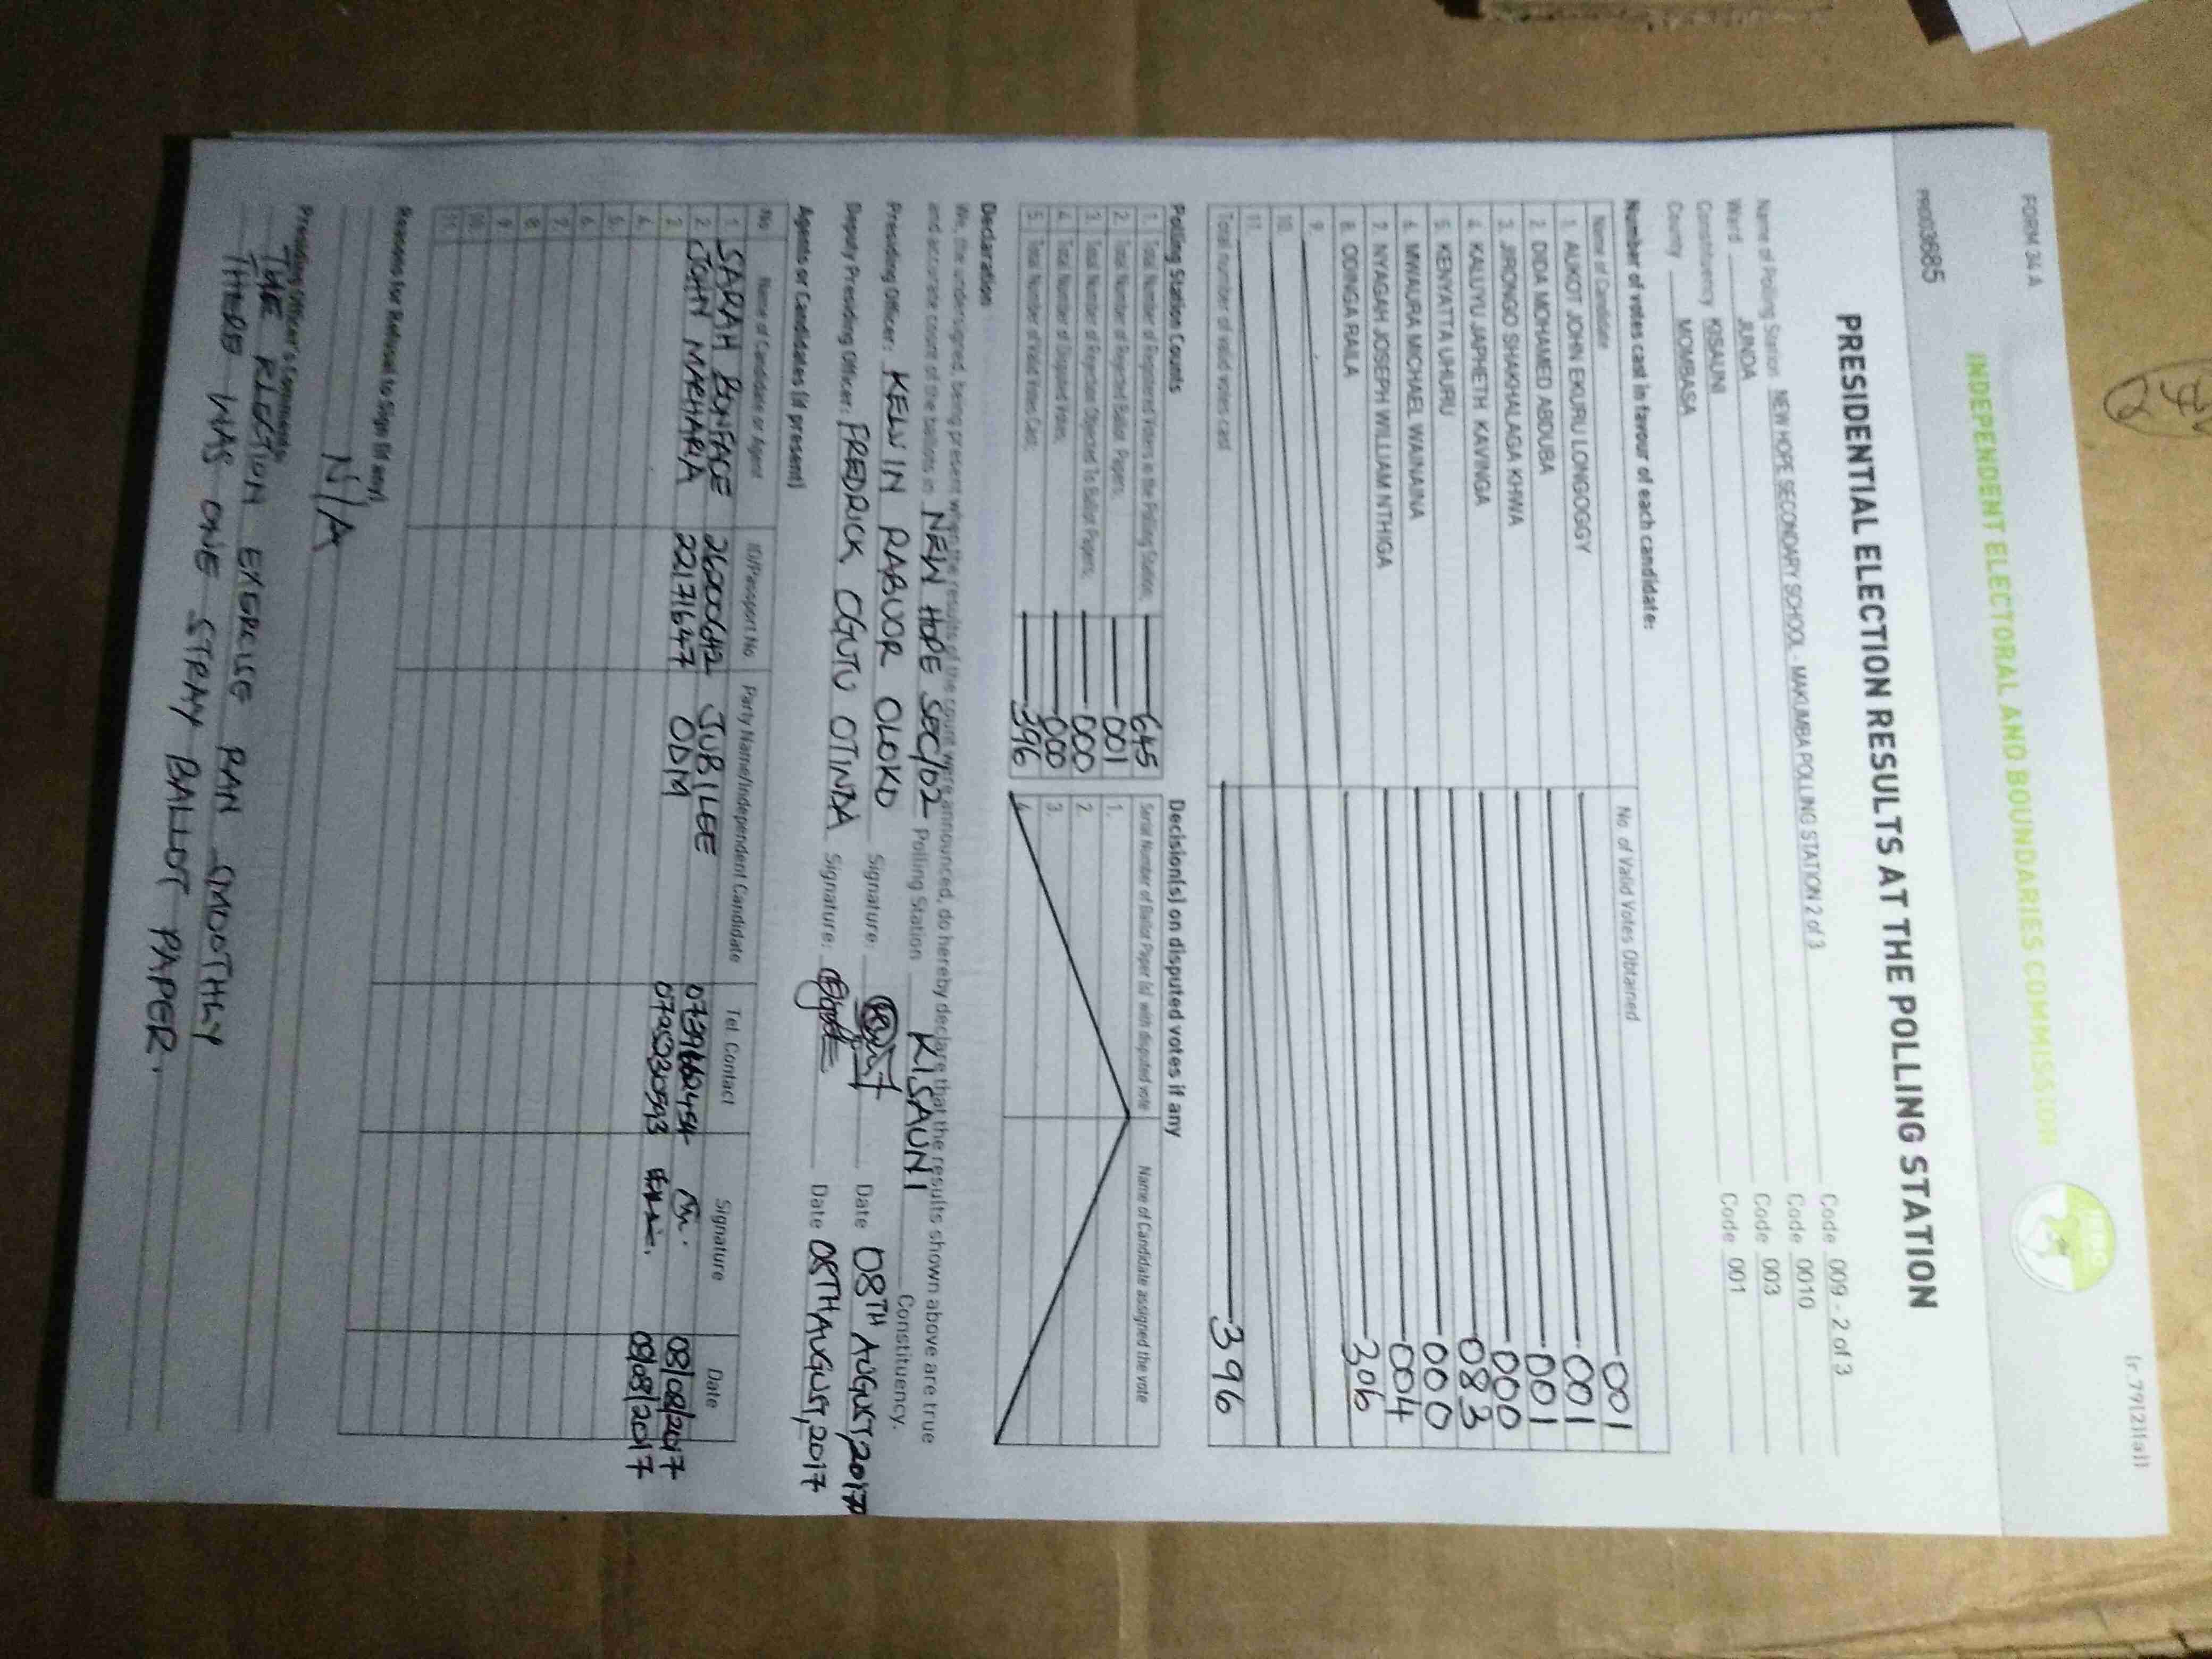 FORM 34 A
(r.79(2)(a))
INDEPENDENT ELECTORAL AND BOUNDARIES COMMISSION
IEBC
PRESIDENTIAL ELECTION RESULTS AT THE POLLING STATION
Name of Polling Station NEW HOPE SECONDARY SCHOOL - MAKUMBA POLLING STATION 2 of 3 Code 009 - 2 of 3
Ward JUNDA Code 0010
Constituency KISAUNI Code 003
County MOMBASA Code 001
Number of votes cast in favour of each candidate:
Name of Candidate No. of Valid Votes Obtained
1. AUKOT JOHN EKURU LONGOGGY 001
2. DIDA MOHAMED ABDUBA 001
3. JIRONGO SHAKHALAGA KHWA 001
4. KALUYU JAPHETH KAVINGA 000
5. KENYATTA UHURU 083
6. MWAURA MICHAEL WAINAINA 000
7. NYAGAH JOSEPH WILLIAM NTHIGA 004
8. ODINGA RAILA 306
9.
10.
11.
Total number of valid votes cast 396
Polling Station Counts
1. Total Number of Registered Voters in the Polling Station; 645
2. Total Number of Rejected Ballot Papers; 001
3. Total Number of Rejection Objected To Ballot Papers; 000
4. Total Number of Disputed Votes; 000
5. Total Number of Valid Votes Cast; 396
Decision(s) on disputed votes if any
Serial Number of Ballot Paper (s) with disputed vote Name of Candidate assigned the vote
1.
2.
3.
4.
Declaration
We, the undersigned, being present when the results of the count were announced, do hereby declare that the results shown above are true
and accurate count of the ballots in NEW HOPE SEC/02 Polling Station KISAUNI Constituency.
Presiding Officer: KELVIN RABUOR OLOKO Signature: Date 08TH AUGUST, 2017
Deputy Presiding Officer: FREDRICK OGUTU OTINDA Signature: Date 08TH AUGUST, 2017
Agents or Candidates (if present)
No. Name of Candidate or Agent ID/Passport No. Party Name/Independent Candidate Tel. Contact Signature Date
1. SARAH BONFACE JUBILEE 08/08/2017
2. JOHN MACHARIA 22171647 ODM 08/08/2017
3.
4.
5.
6.
7.
8.
9.
10.
11.
Reasons for Refusal to Sign (if any)
N/A
Presiding Officer's Comments:
THE ELECTION EXERCISE RAN SMOOTHLY
THERE WAS ONE STRAY BALLOT PAPER.